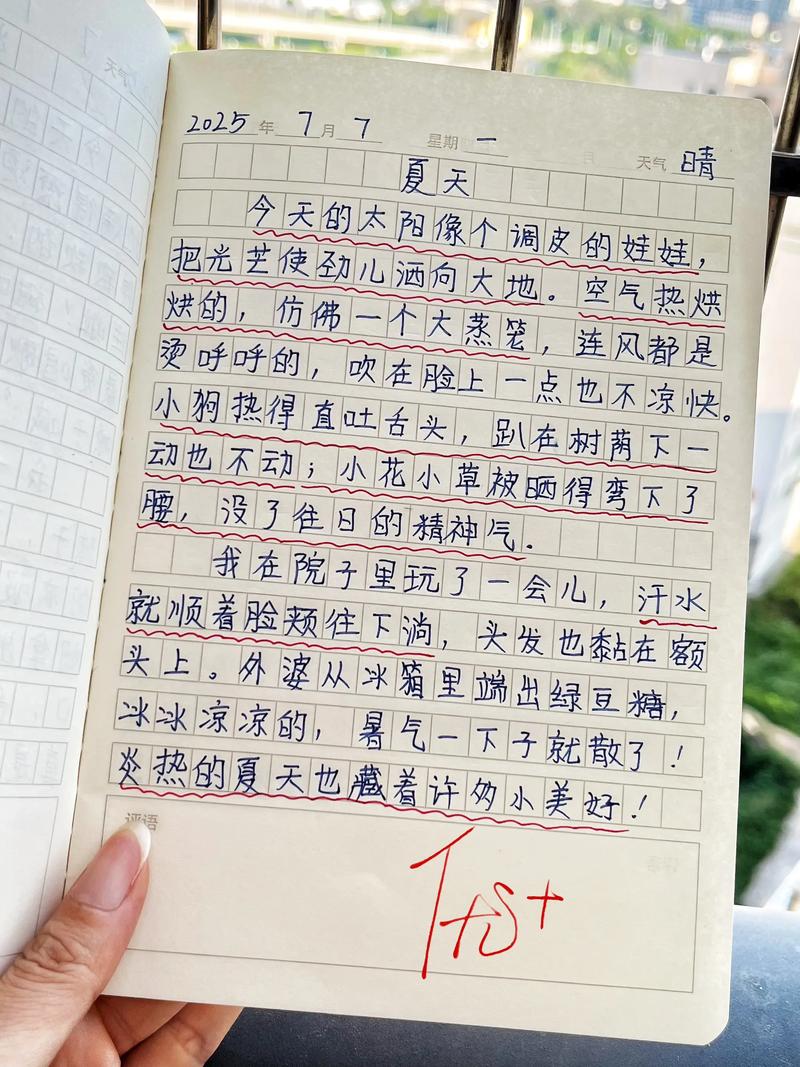 2025年7月7 星期一 天气 晴
夏天
今天的太阳像个调皮的娃娃，
把光芒使劲儿洒向大地。空气热烘
烘的，仿佛一个大蒸笼，连风都是
烫呼呼的，吹在脸上一点也不凉快。
小狗热得直吐舌头，趴在树荫下一
动也不动；小花小草被晒得弯下了
腰，没了往日的精神气。
我在院子里玩了一会儿，汗水
就顺着脸颊往下淌，头发也黏在额
头上。外婆从冰箱里端出绿豆糖，
冰冰凉凉的，暑气一下子就散了！
炎热的夏天也藏着许多小美好！
评语